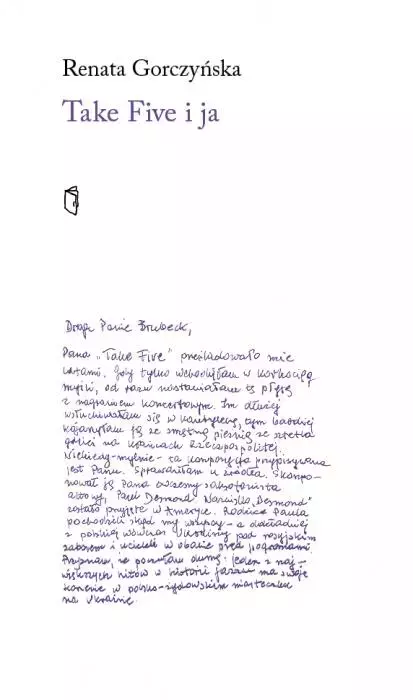 Renata Gorczyńska
Take Five i ja
Drogi Panie Brubeck,
Pana „Take Five” prześladowało mnie
latami. Gdy tylko w
myśli, od razu nastawiałam tę płytę
z nagraniem koncertowym. Im dłużej
wsłuchiwałam się w kantylenę, tym bardziej
kojarzyłam ją ze smętną pieśnią ze sztetla
gdzieś na krańcach Rzeczpospolitej.
Niekiedy - mylnie - ta kompozycja przypisywana
jest Panu. Sprawdziłam u źródła. Skompo-
nował ją Pana ówczesny saksofonista
altowy, Paul Desmond. Nazwisko „Desmond”
zostało przyjęte w Ameryce. Rodzice Paula
pochodzili skąd my wszyscy - a dokładniej
z polskiej wówczas Ukrainy pod rosyjskim
zaborem i uciekli w obawie przed pogromami.
Przyznam, że poczułam dumę: jeden z naj-
większych hitów w historii jazzu ma swoje
korzenie w polsko-żydowskim miasteczku
na Ukrainie.